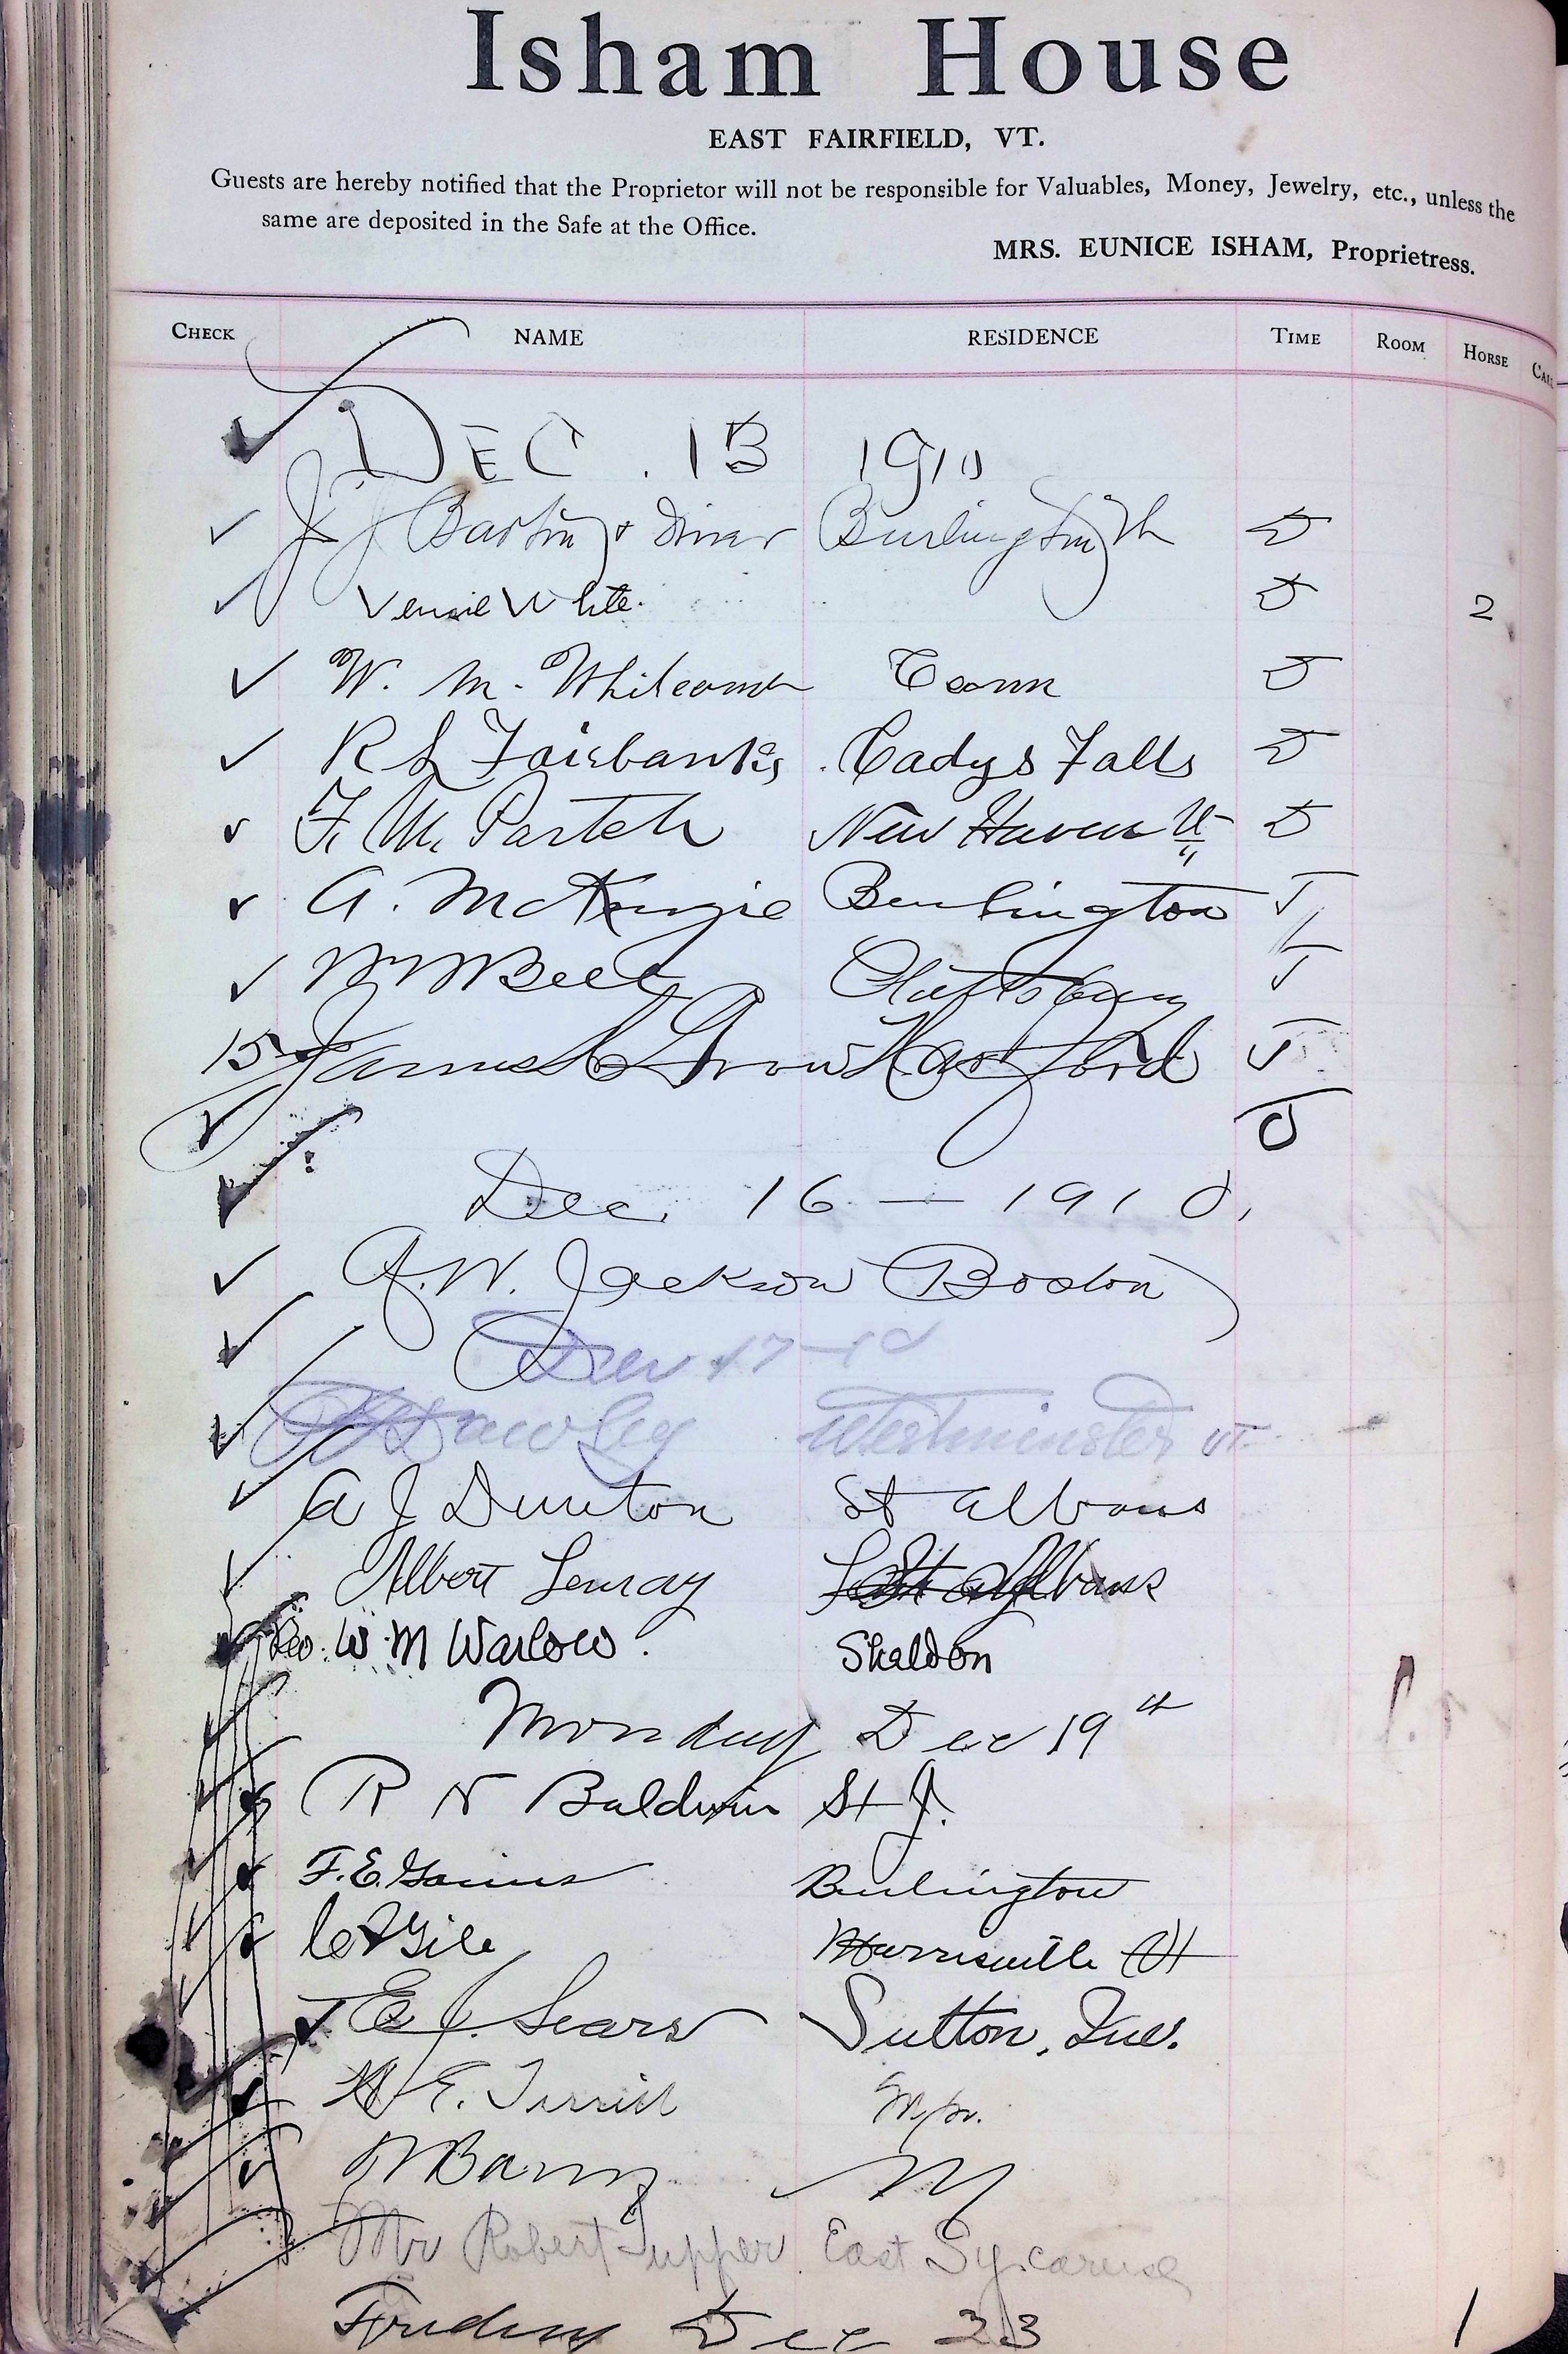 Isham House
EAST FAIRFIELD, VT.
Guests are hereby notified that the Proprietor will not be responsible for Valuables, Money, Jewelry, etc., unless the
same are deposited in the Safe at the Office.
MRS. EUNICE ISHAM, Proprietress.
CHECK NAME RESIDENCE TIME ROOM HORSE
DEC. 13 1910
J J & Burlington Vt
White. 2
W. M. Whitcomb Conn
R L Fairbanks Cadys Falls
F. M. Partch New Haven Vt
A. McKenzie Burlington
Bell Plattsburg
15 James Hartford
Dec. 16 — 1910.
A. W. Jackson Boston
Dec 17-10
Westminster VT
A J Dunton St Albans
Albert St Albans
Rev. W. M Warlow. Sheldon
Monday Dec 19th
R N Baldwin St J.
F. E. Burlington
Gile Morrisville Vt
E. J. Sears Sutton, Que.
E. Terrill
Mr Robert Tupper East Sycaruse
Friday Dec 23
1